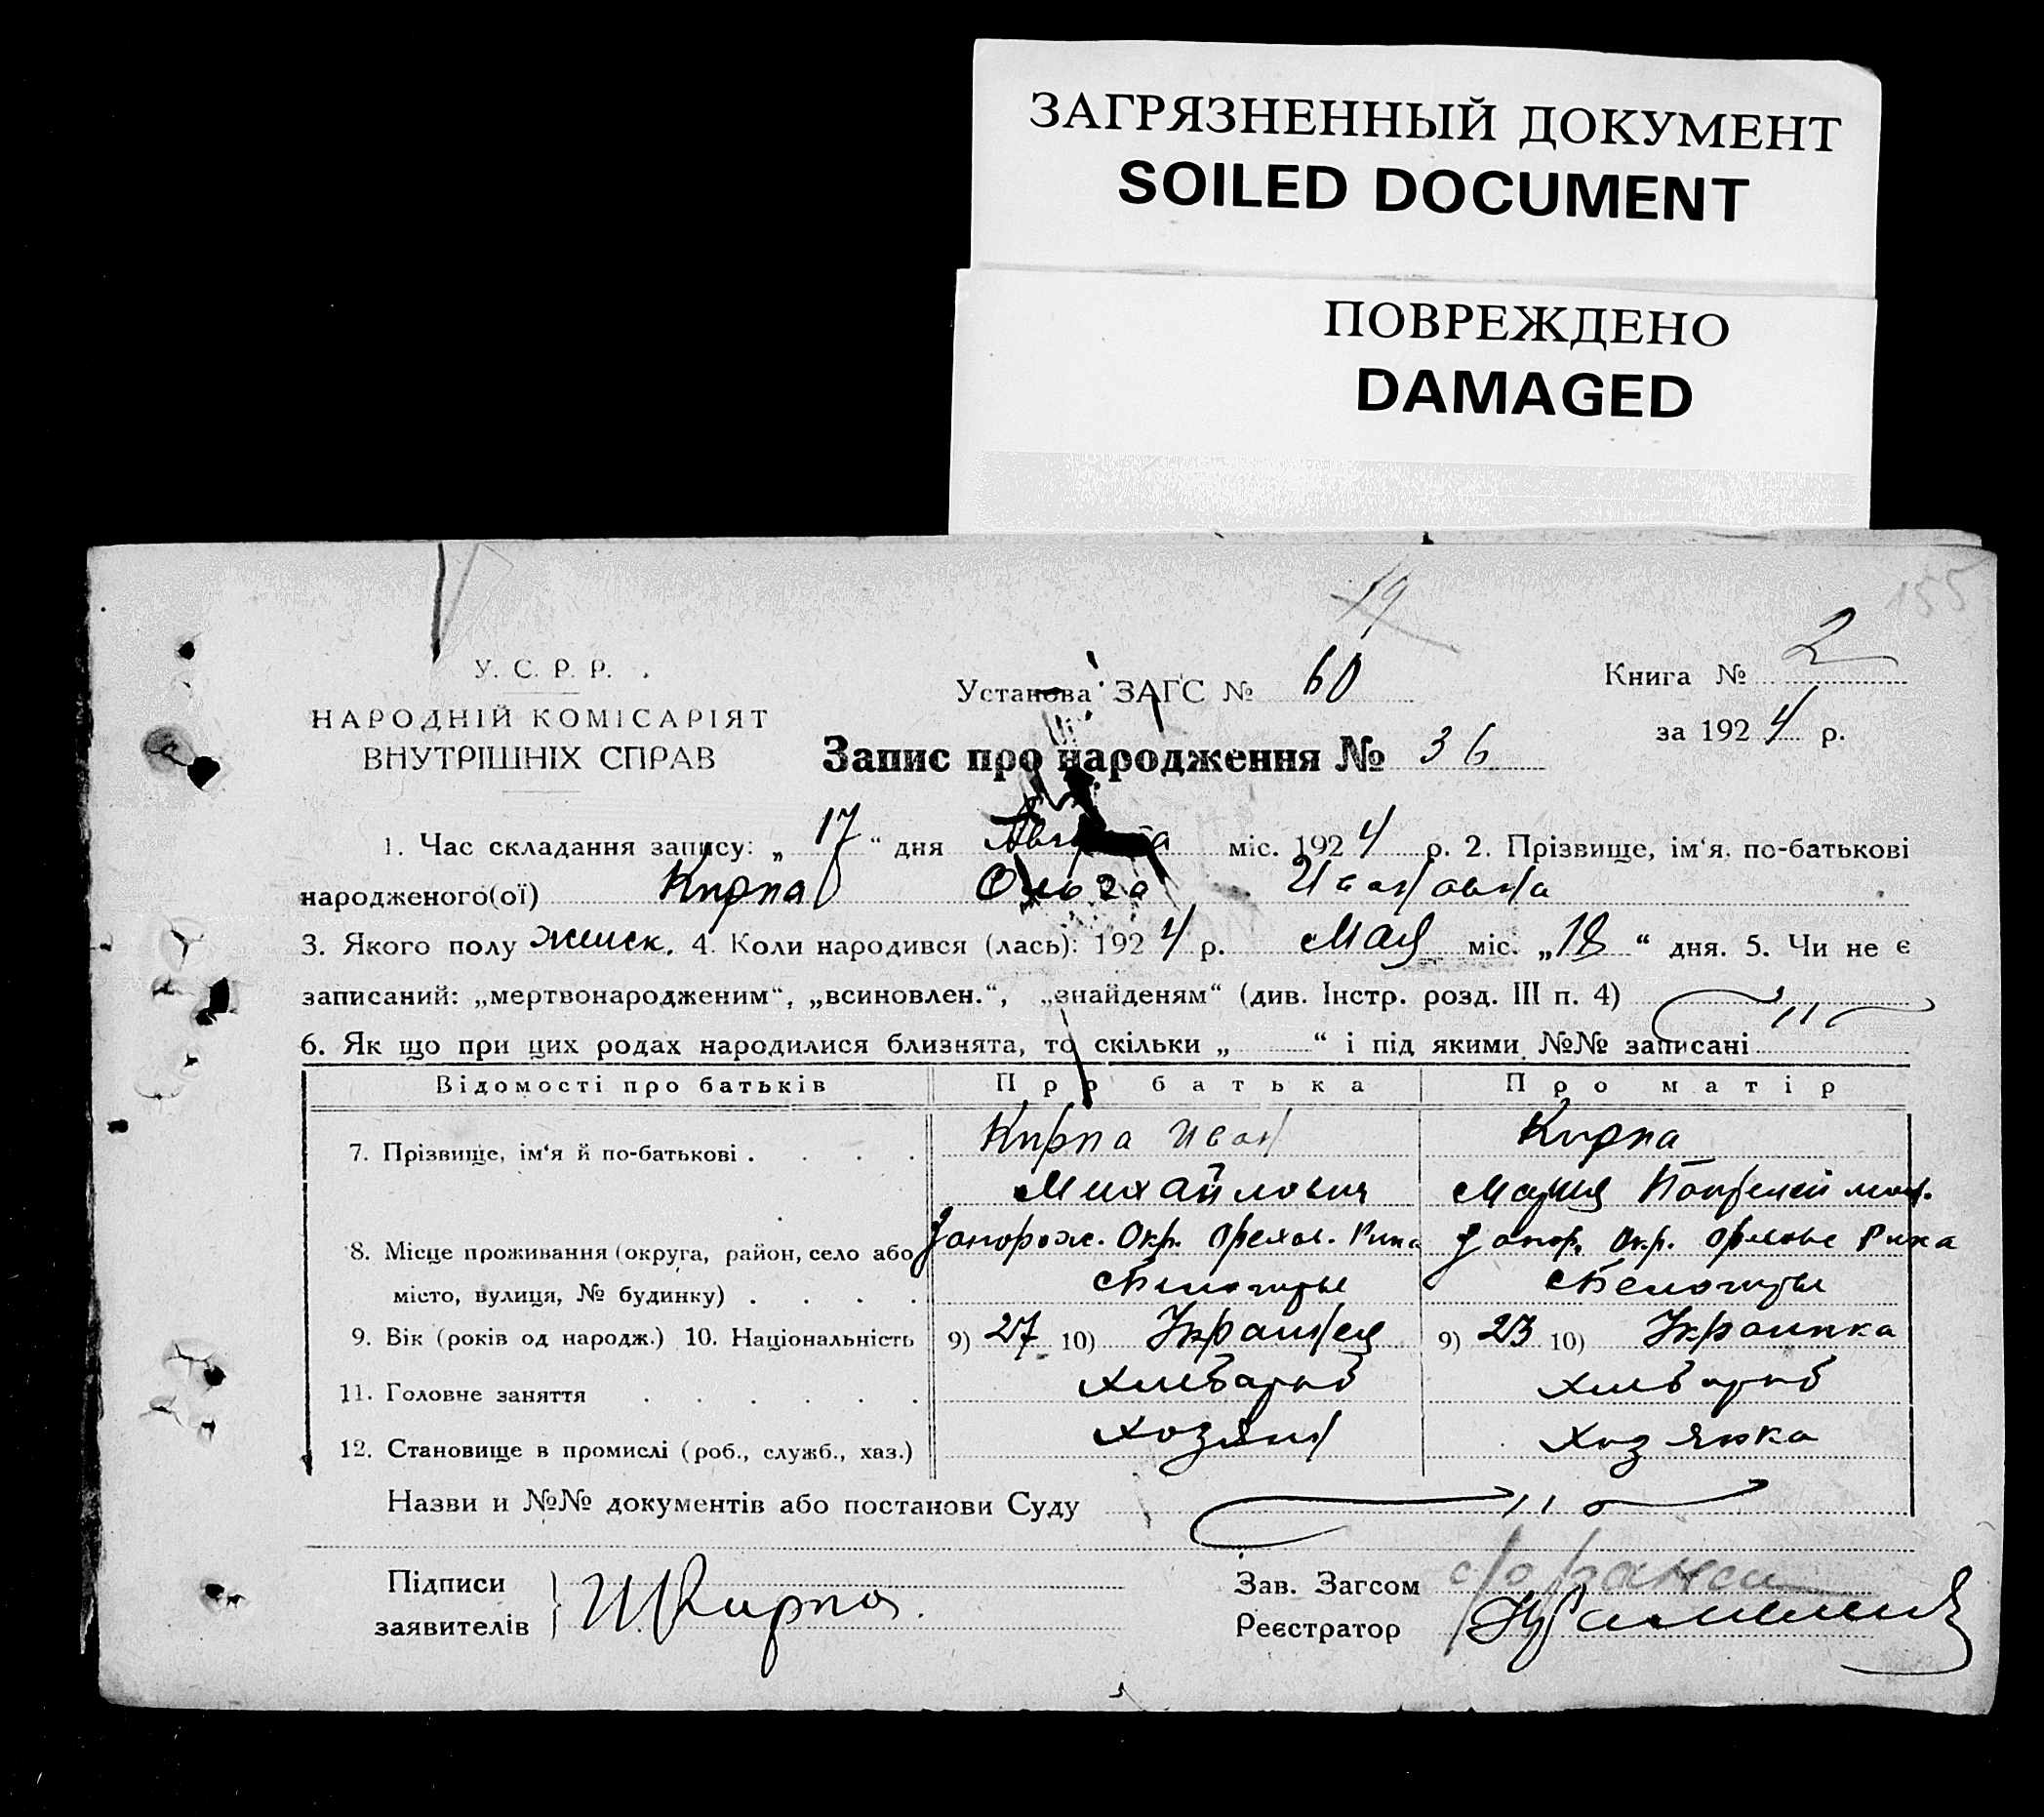 ЗАГРЯЗНЕННЫЙ ДОКУМЕНТ
SOILED DOCUMENT
ПОВРЕЖДЕНО
DAMAGED
155
19
У. С. Р. Р.
НАРОДНІЙ КОМІСАРІЯТ
ВНУТРІШНІХ СПРАВ
Установа ЗАГС № 60
Книга № 2
за 1924 р.
Запис про народження № 36
1. Час складання запису: „17“ дня Августа міс. 1924 р. 2. Прізвище, ім‘я, по-батькові
народженого(ої) Кирпа Ольга Ивановна
3. Якого полу женск. 4. Коли народився (лась): 1924 р. Мая міс. „18“ дня. 5. Чи не є
записаний: „мертвонародженим“, „всиновлен.“, „знайденям“ (див. Інстр. розд. III п. 4)
6. Як що при цих родах народилися близнята, то скільки „ “ і під якими №№ записані
Відомості про батьків Про батька Про матір
7. Прізвище, ім‘я й по-батькові . . . . Кирпа Иван Кирпа
Михайлович Мария
8. Місце проживання (округа, район, село або Запорож. Окр. Орехов. Рика Запор. Окр. Рика
місто, вулиця, № будинку) . . . .
9. Вік (років од народж.) 10. Національність 9) 27 10) Украинец 9) 23 10) Украинка
11. Головне заняття . . . . . . Хлебароб Хлебароб
12. Становище в промислі (роб., служб., хаз.) Хозяин Хозяйка
Назви и №№ документів або постанови Суду
Підписи
заявителів И Кирпа.
Зав. Загсом
Реєстратор